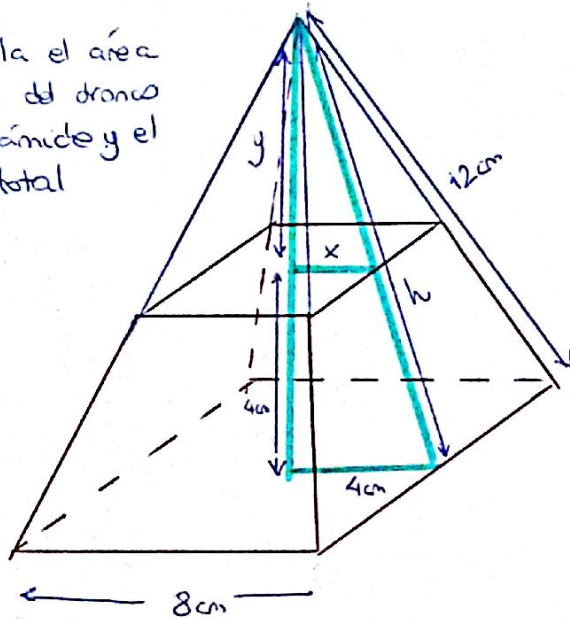 la el área
del tronco
ámide y el
total
y
12cm
x
h
4cm
4cm
8cm